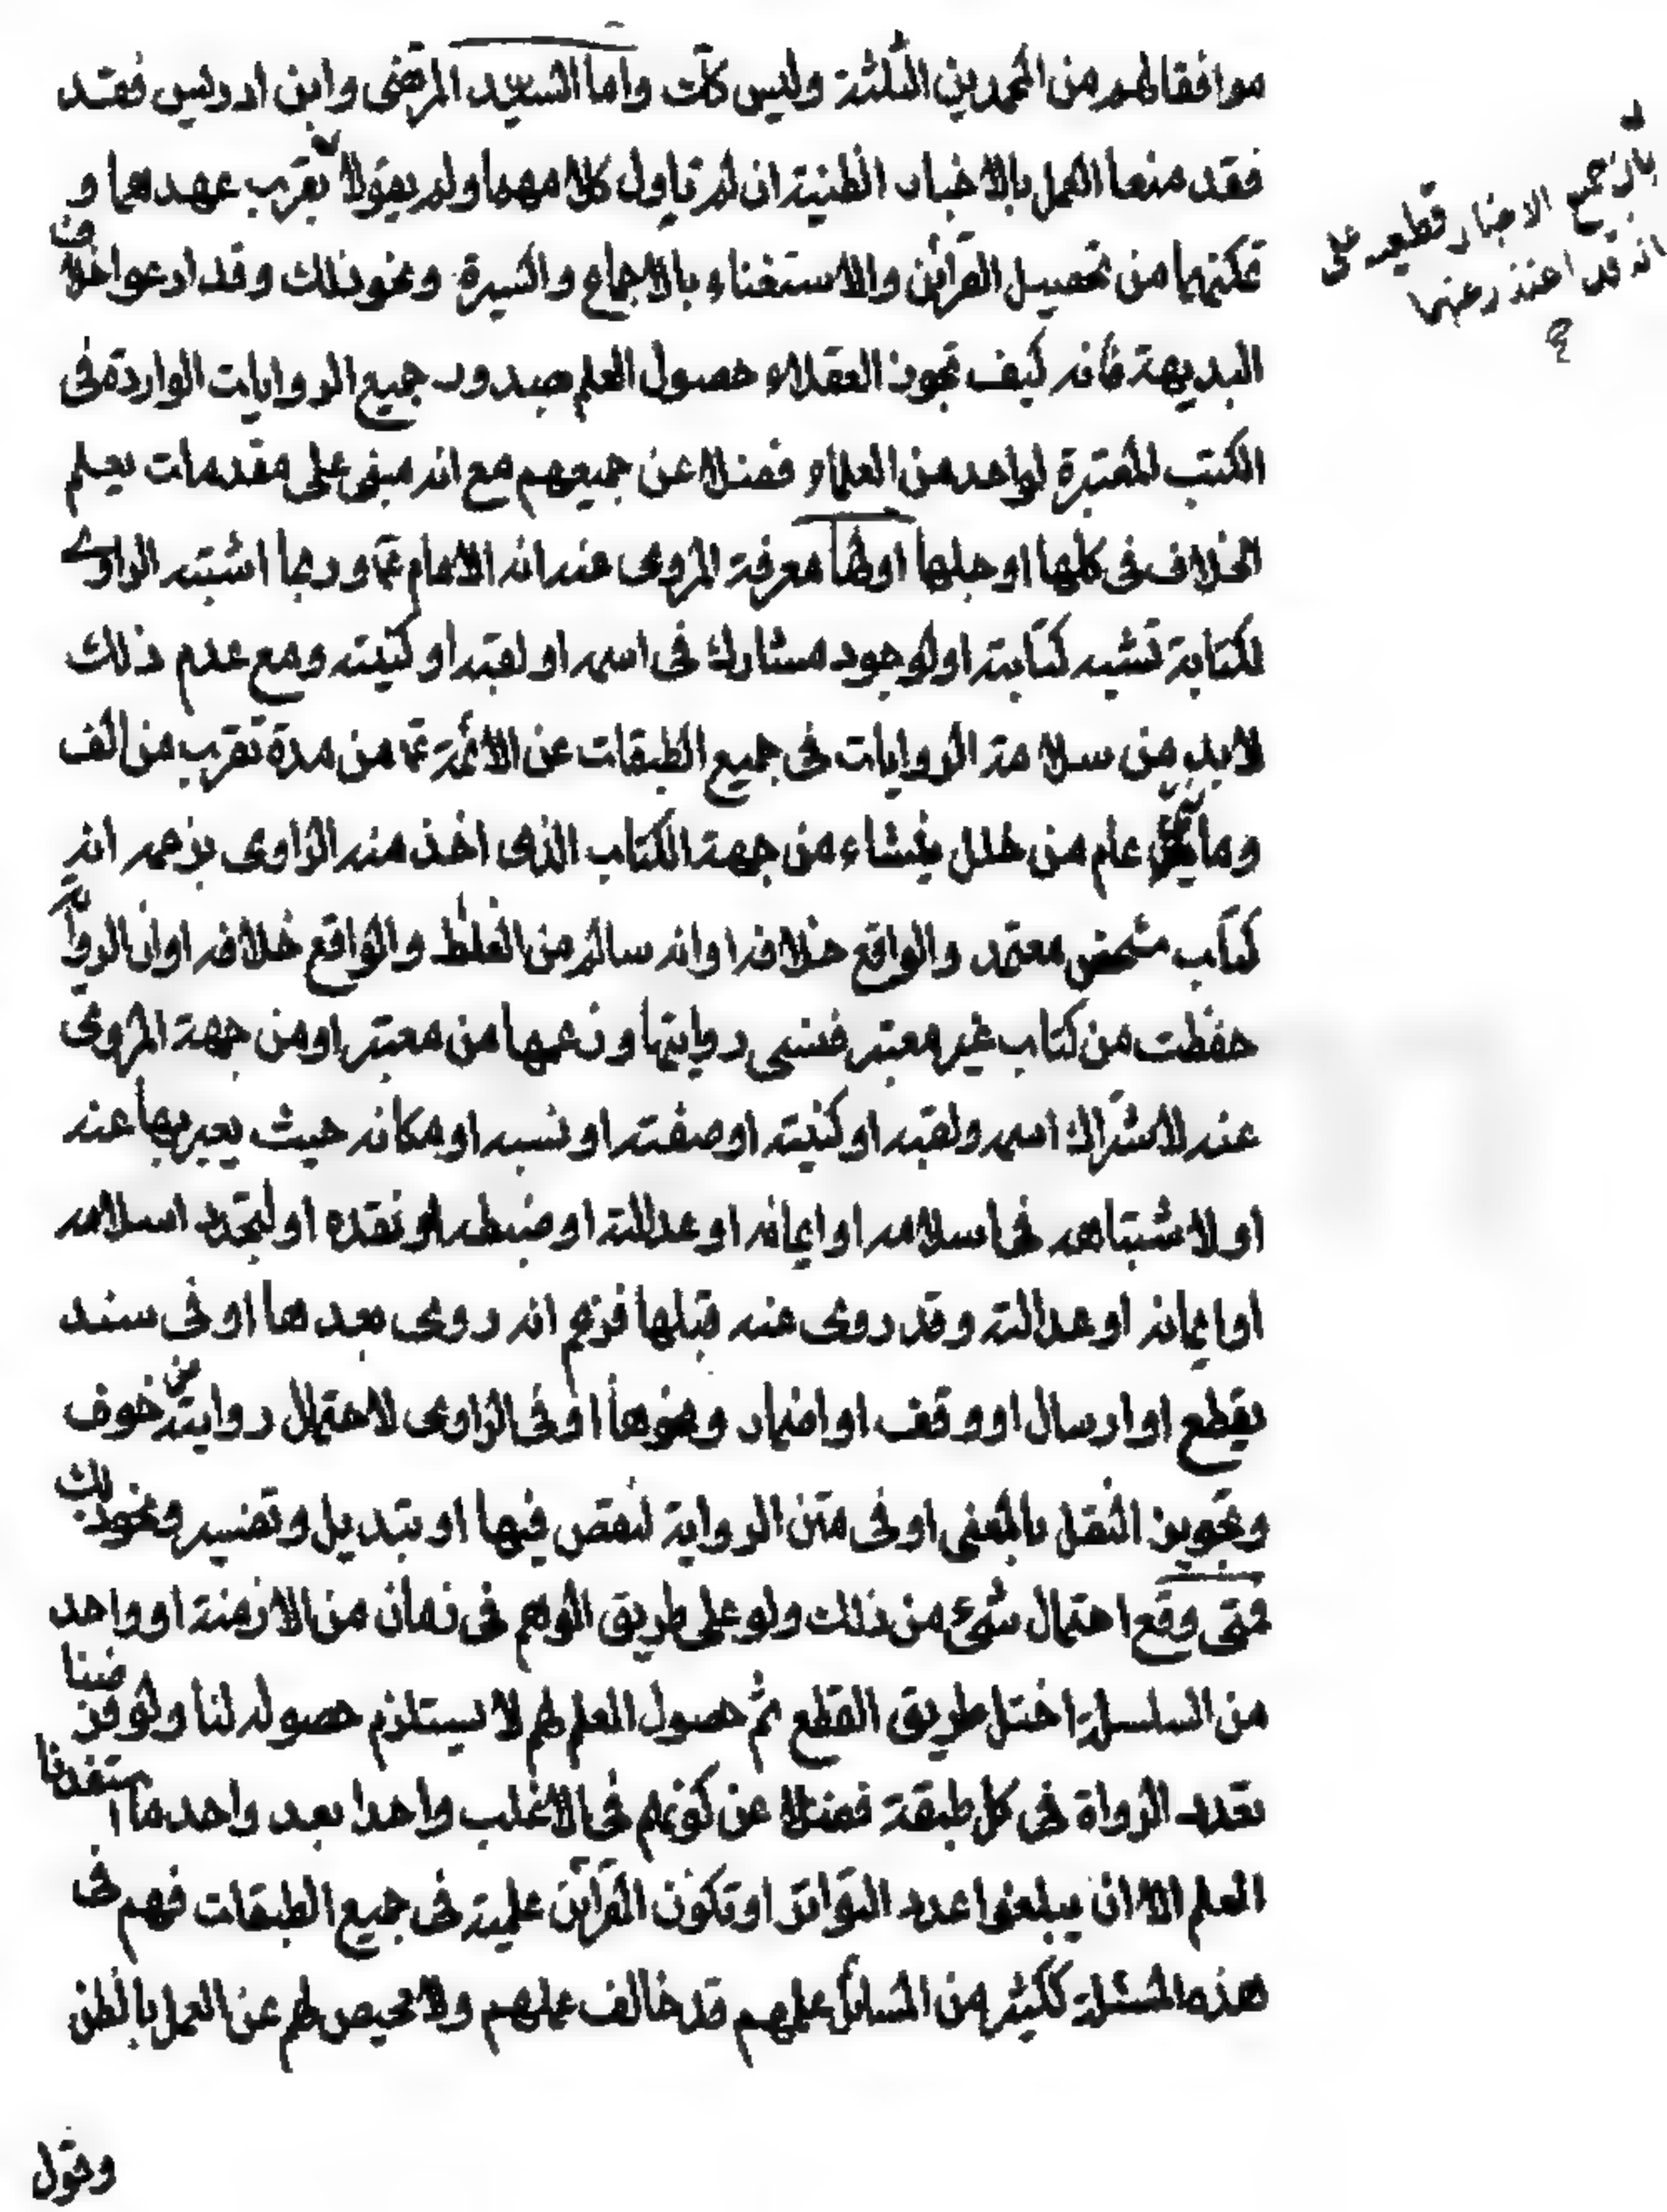 موافقا لهم من المحمدين الثلثة وليس كك واما السيد المرتضى وابن ادريس فقد
فقد منعا العمل بالاخبار الظنية ان لم ناول كلامهما ولم يقولا لقرب عهدهما و
تمكنهما من تحصيل القرائن والاستغناء بالاجماع والسيرة ونحو ذلك وقد ادعوا خلاف
البديهة فانه كيف تجوز العقلاء حصول العلم بصدور جميع الروايات الواردة في
الكتب المعتبرة لواحد من العلماء فضلا عن جميعهم مع انه مبنى على مقدمات يعلم
الخلاف في كلها او جلها اولها معرفة المروى عنه انه الامام ع وربما اشتبه الراوى
لكتابة تشبه كتابته او لوجود مشارك في اسمه او لقبه او كنيته ومع عدم ذلك
لابد من سلامة الروايات في جميع الطبقات عن الائمة ع من مدة تقرب من الف
وماتى عام من خلل ينشاء من جهة الكتاب الذى اخذ منه الراوى بزعمه انه
كتاب شخص معتمد والواقع خلافه او انه سالم من الغلط والواقع خلافه او ان الرواية
حفظت من كتاب غير معتبر فنسى روايتها وزعمها من معتبر او من جهة المروى
عنه لاشتراك اسمه ولقبه او كنيته او صفته او نسبه او مكانه حيث يعبر بها عنه
او لاشتباهه في اسلامه او ايمانه او عدالته او ضبطه او نقده او لتجدد اسلامه
او ايمانه او عدالته وقد روى عنه قبلها فزعم انه روى بعدها او في سند
بقطع او ارسال او وقف او اضمار ونحوها او في الراوى لاحتمال روايته من خوف
وتجويز النقل بالمعنى او في متن الرواية لنقص فيها او تبديل وتغيير ونحو ذلك
فمتى وقع احتمال شىء من ذلك ولو على طريق الوهم في زمان من الازمنة او واحد
من السلسلة اختل طريق القطع ثم حصول العلم لهم لا يستلزم حصوله لنا ولو فرضنا
تعدد الرواة في كل طبقة فضلا عن كونهم في الاغلب واحدا بعد واحد ما استفدنا
العلم الا ان يبلغوا عدد التواتر او تكون القرائن علمية في جميع الطبقات فهم في
هذه المسئلة ككثير من المسائل علمهم قد خالف عملهم ولا محيص لهم عن العمل بالظن
وقول
بان جميع الاخبار قطعية على
انه قد اعتذر عنهما